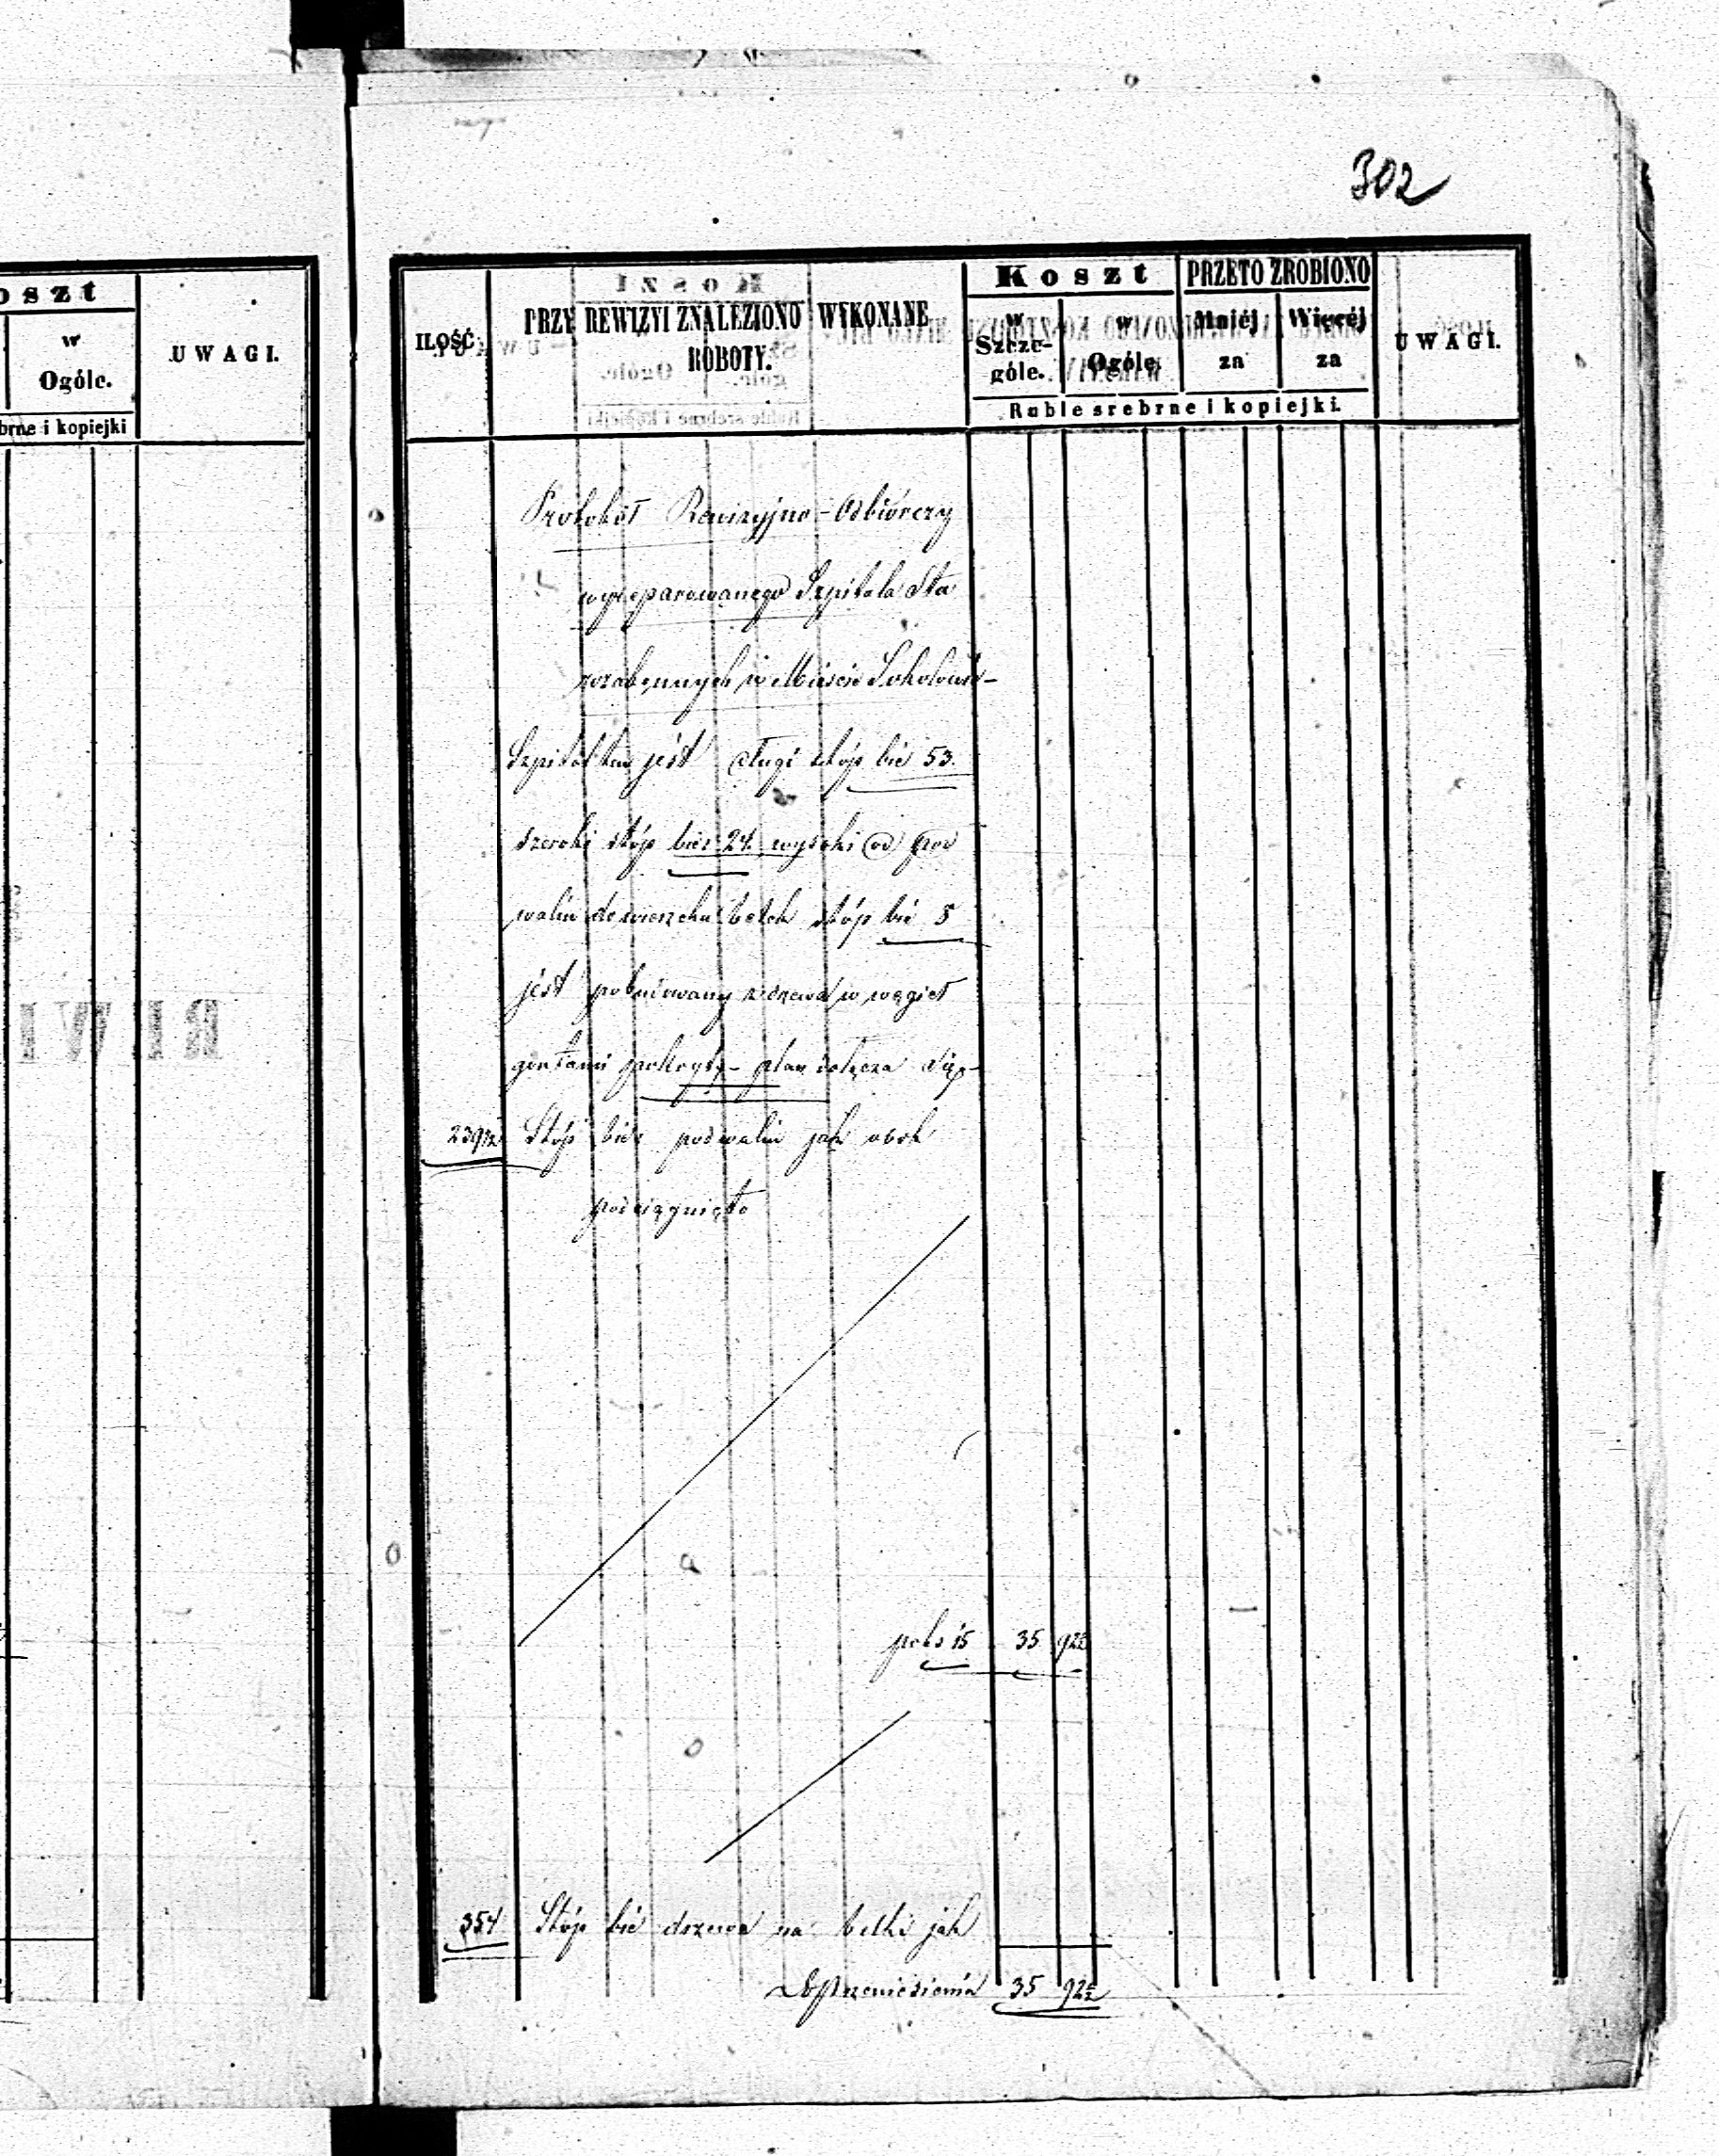 302
oszt
w
Ogóle.
brne i kopiejki
UWAGI.
ILOŚĆ
PRZY REWIZYI ZNALEZIONO WYKONANE
ROBOTY.
Koszt
w
Szcze-
góle.
w
Ogóle.
PRZETO ZROBIONO
Mniéj
za
Więcéj
za
Ruble srebrne i kopiejki.
UWAGI.
Protokół Rewizyjno-Odbiórczy
wyreparowanego Szpitala Sta
rozakonnych w Mieście Sokołowie-
Szpital ten jést długi stóp bié 53.
szeroki stóp bież 24. wysoki od pod
walin do wierzchu belek stóp bié 8
jést pobudowany z drzewa w węgieł
gontami pokryty- plan dołącza się-
239½ Stóp bież podwalin jak obok
podciągnięto
po ks 15 35 92½
354 Stóp bié drzewa na belki jak
Do Przeniesienia 35 92½